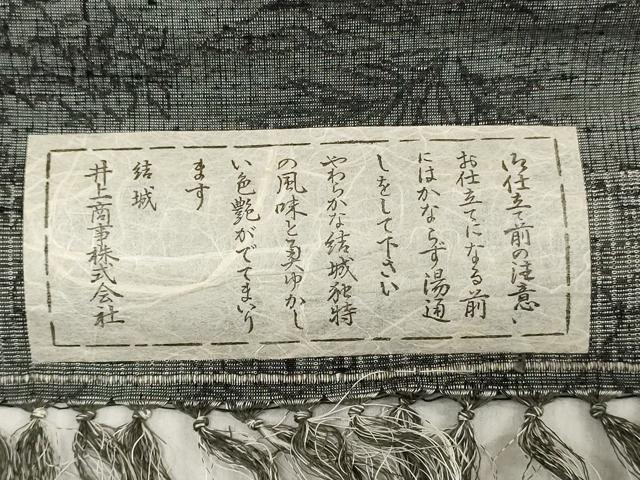 御仕立て前の注意
お仕立てになる前
にはかならず湯通
しをして下さい
やわらかな結城独特
の風味と奥ゆかし
い色艶がでてまいり
ます
結城
井上商事株式会社